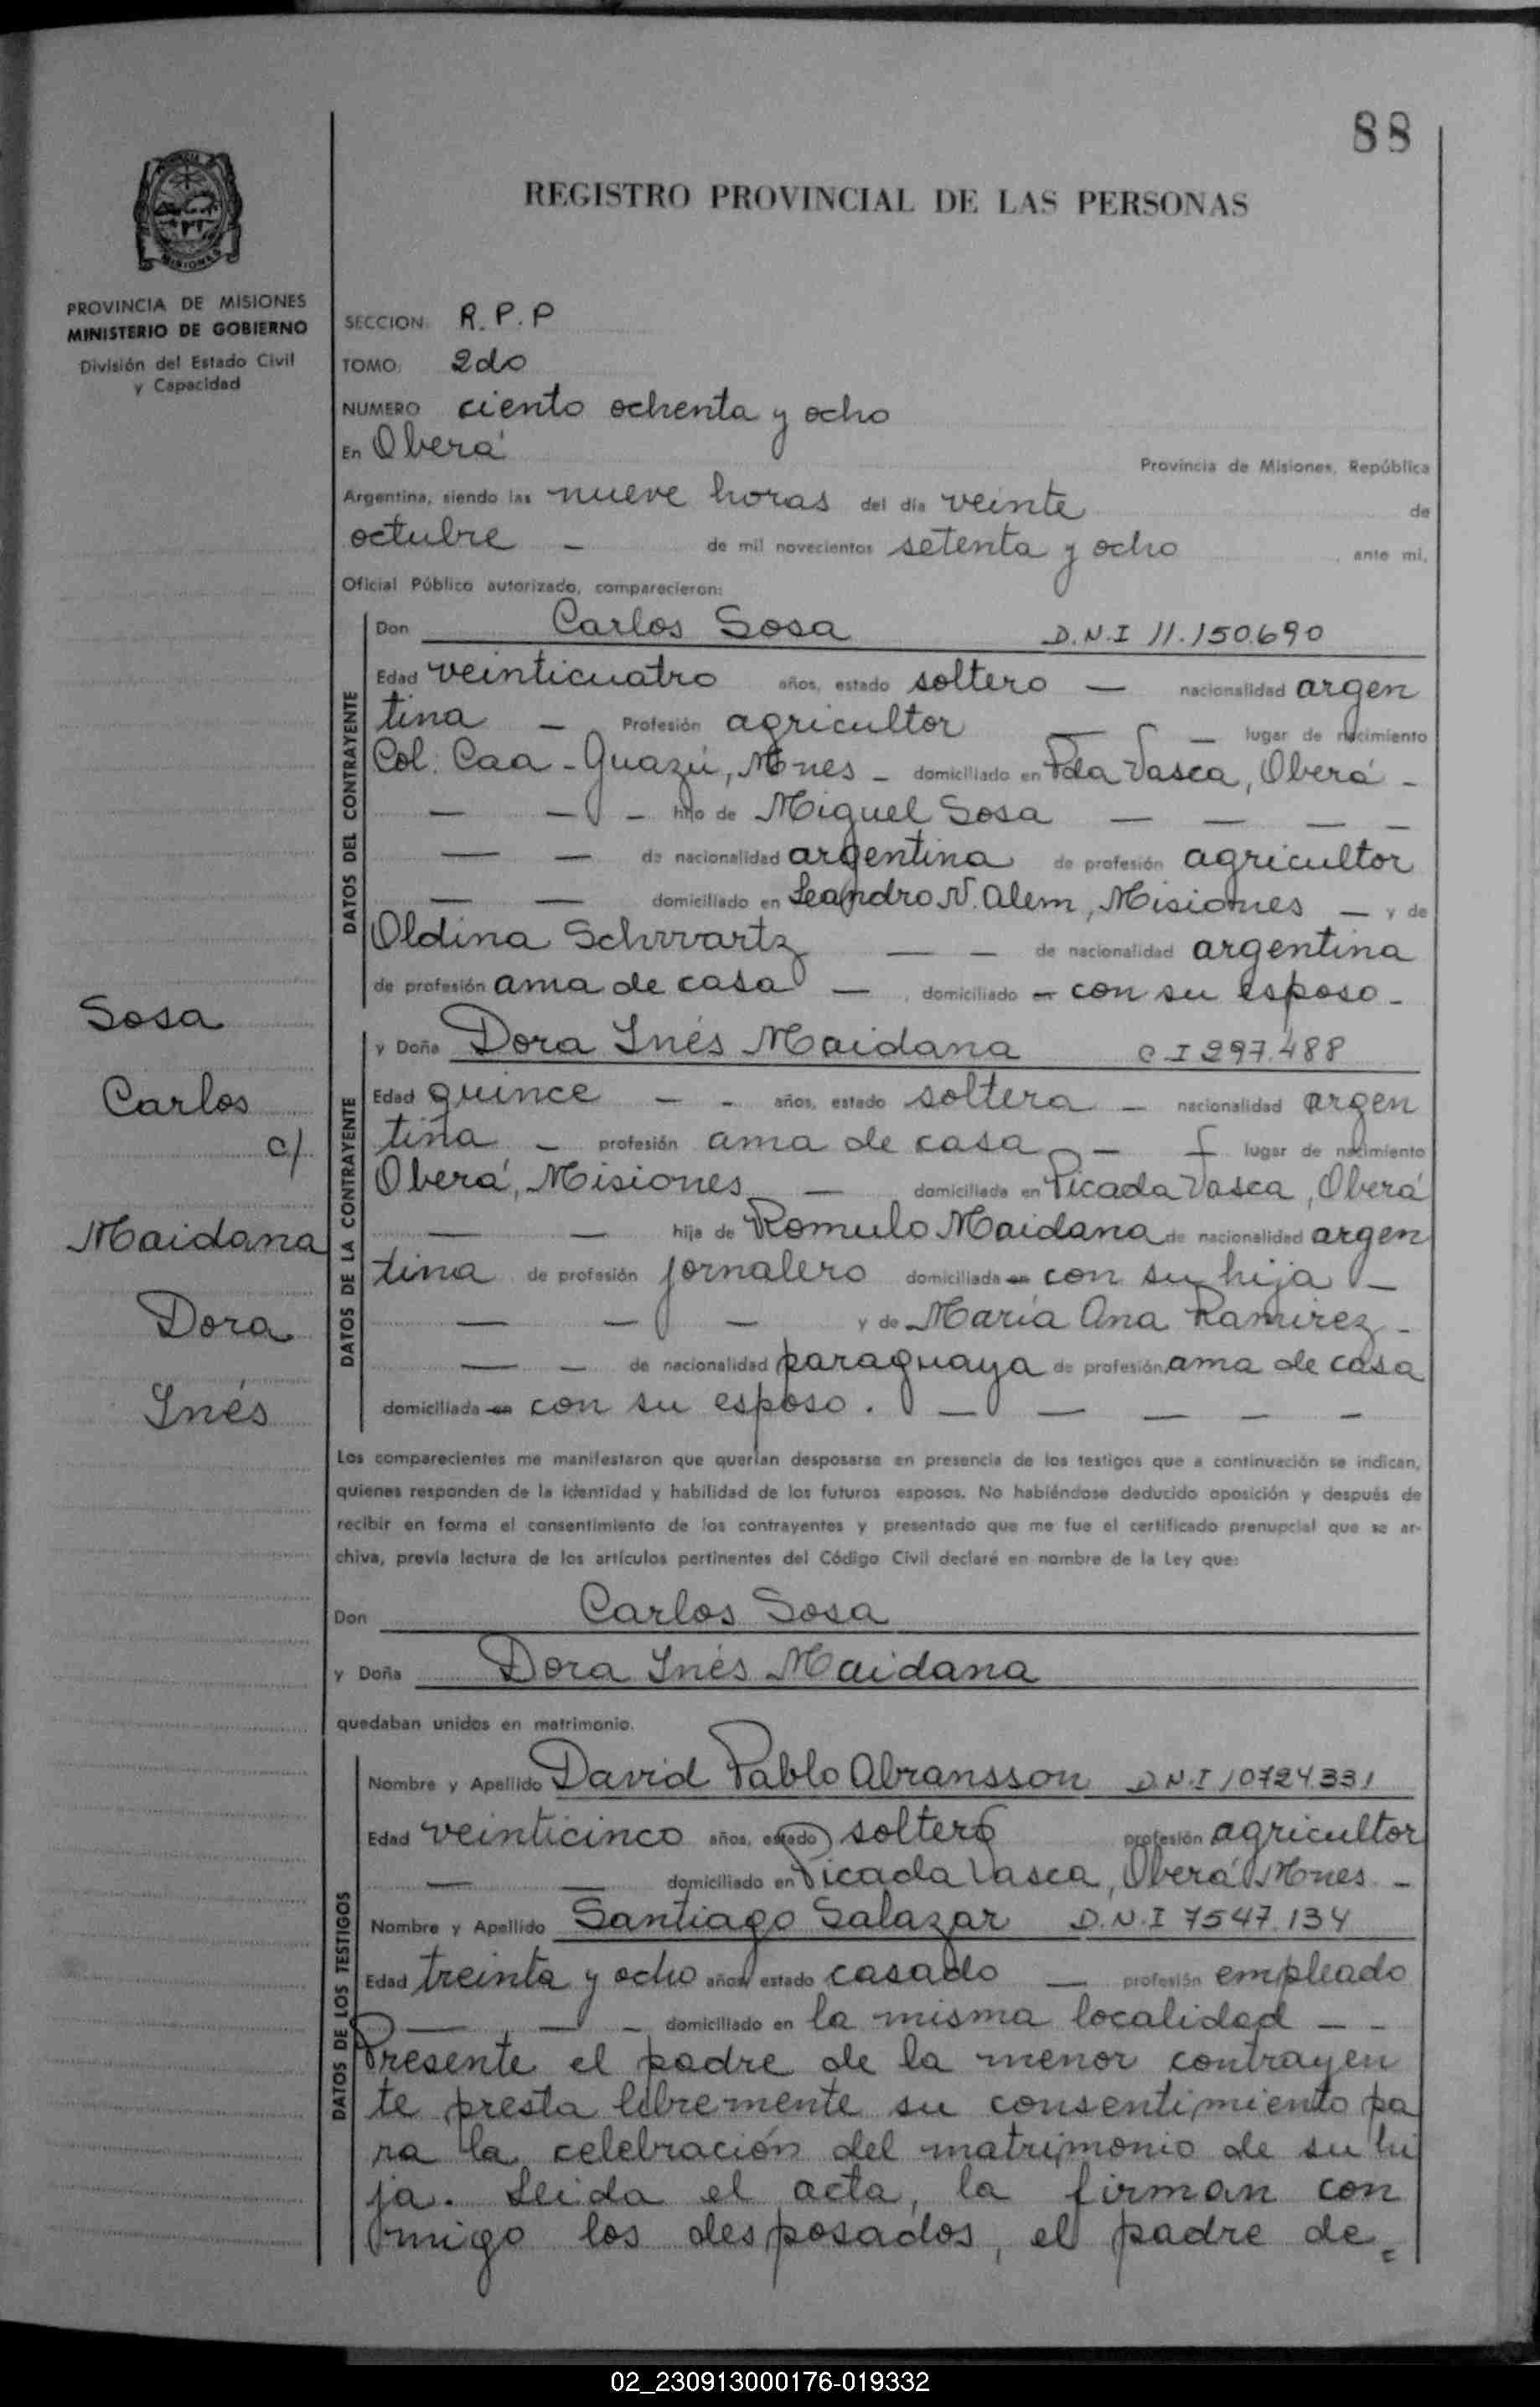 88
REGISTRO PROVINCIAL DE LAS PERSONAS
MISIONES
PROVINCIA DE MISIONES
MINISTERIO DE GOBIERNO
División del Estado Civil
y Capacidad
SECCION: R.P.P
TOMO: 2do
NUMERO ciento ochenta y ocho
En Oberá Provincia de Misiones, República
Argentina, siendo las nueve horas del día veinte de
octubre - de mil novecientos setenta y ocho, ante mi,
Oficial Público autorizado, comparecieron:
DATOS DEL CONTRAYENTE
Don Carlos Sosa D.N.I 11.150.690
Edad veinticuatro años, estado soltero — nacionalidad argen
tina - Profesión agricultor — lugar de nacimiento
Col. Caa-Guazú, Mnes - domiciliado en Pda Vasca, Oberá -
— — - hijo de Miguel Sosa — — — -
— — de nacionalidad argentina de profesión agricultor
— — domiciliado en Leandro N. Alem, Misiones — y de
Oldina Schwartz — - de nacionalidad argentina
de profesión ama de casa —, domiciliado en con su esposo -
Sosa
Carlos
c/.
Maidana
Dora
Inés
DATOS DE LA CONTRAYENTE
y Doña Dora Inés Maidana C.I 297.488
Edad quince - - años, estado soltera - nacionalidad argen
tina - profesión ama de casa - — lugar de nacimiento
Oberá, Misiones — domiciliada en Picada Vasca, Oberá
— — hija de Romulo Maidana de nacionalidad argen
tina de profesión jornalero domiciliada en con su hija -
— — — y de María Ana Ramirez -
— - de nacionalidad paraguaya de profesión ama de casa
domiciliada en con su esposo. — — — - -
Los comparecientes me manifestaron que querían desposarse en presencia de los testigos que a continuación se indican,
quienes responden de la identidad y habilidad de los futuros esposos. No habiéndose deducido oposición y después de
recibir en forma el consentimiento de los contrayentes y presentado que me fue el certificado prenupcial que se ar-
chiva, previa lectura de los artículos pertinentes del Código Civil declaré en nombre de la Ley que:
Don Carlos Sosa
y Doña Dora Inés Maidana
quedaban unidos en matrimonio.
DATOS DE LOS TESTIGOS
Nombre y Apellido David Pablo Abransson D.N.I 10724331
Edad veinticinco años, estado soltero profesión agricultor
— — domiciliado en Picada Vasca, Oberá Mnes -
Nombre y Apellido Santiago Salazar D.N.I 7547.134
Edad treinta y ocho años, estado casado — profesión empleado
— — - domiciliado en la misma localidad - -
Presente el padre de la menor contrayen
te presta libremente su consentimiento pa
ra la celebración del matrimonio de su hi
ja. Leida el acta, la firman con
migo los desposados, el padre de =
02_230913000176-019332